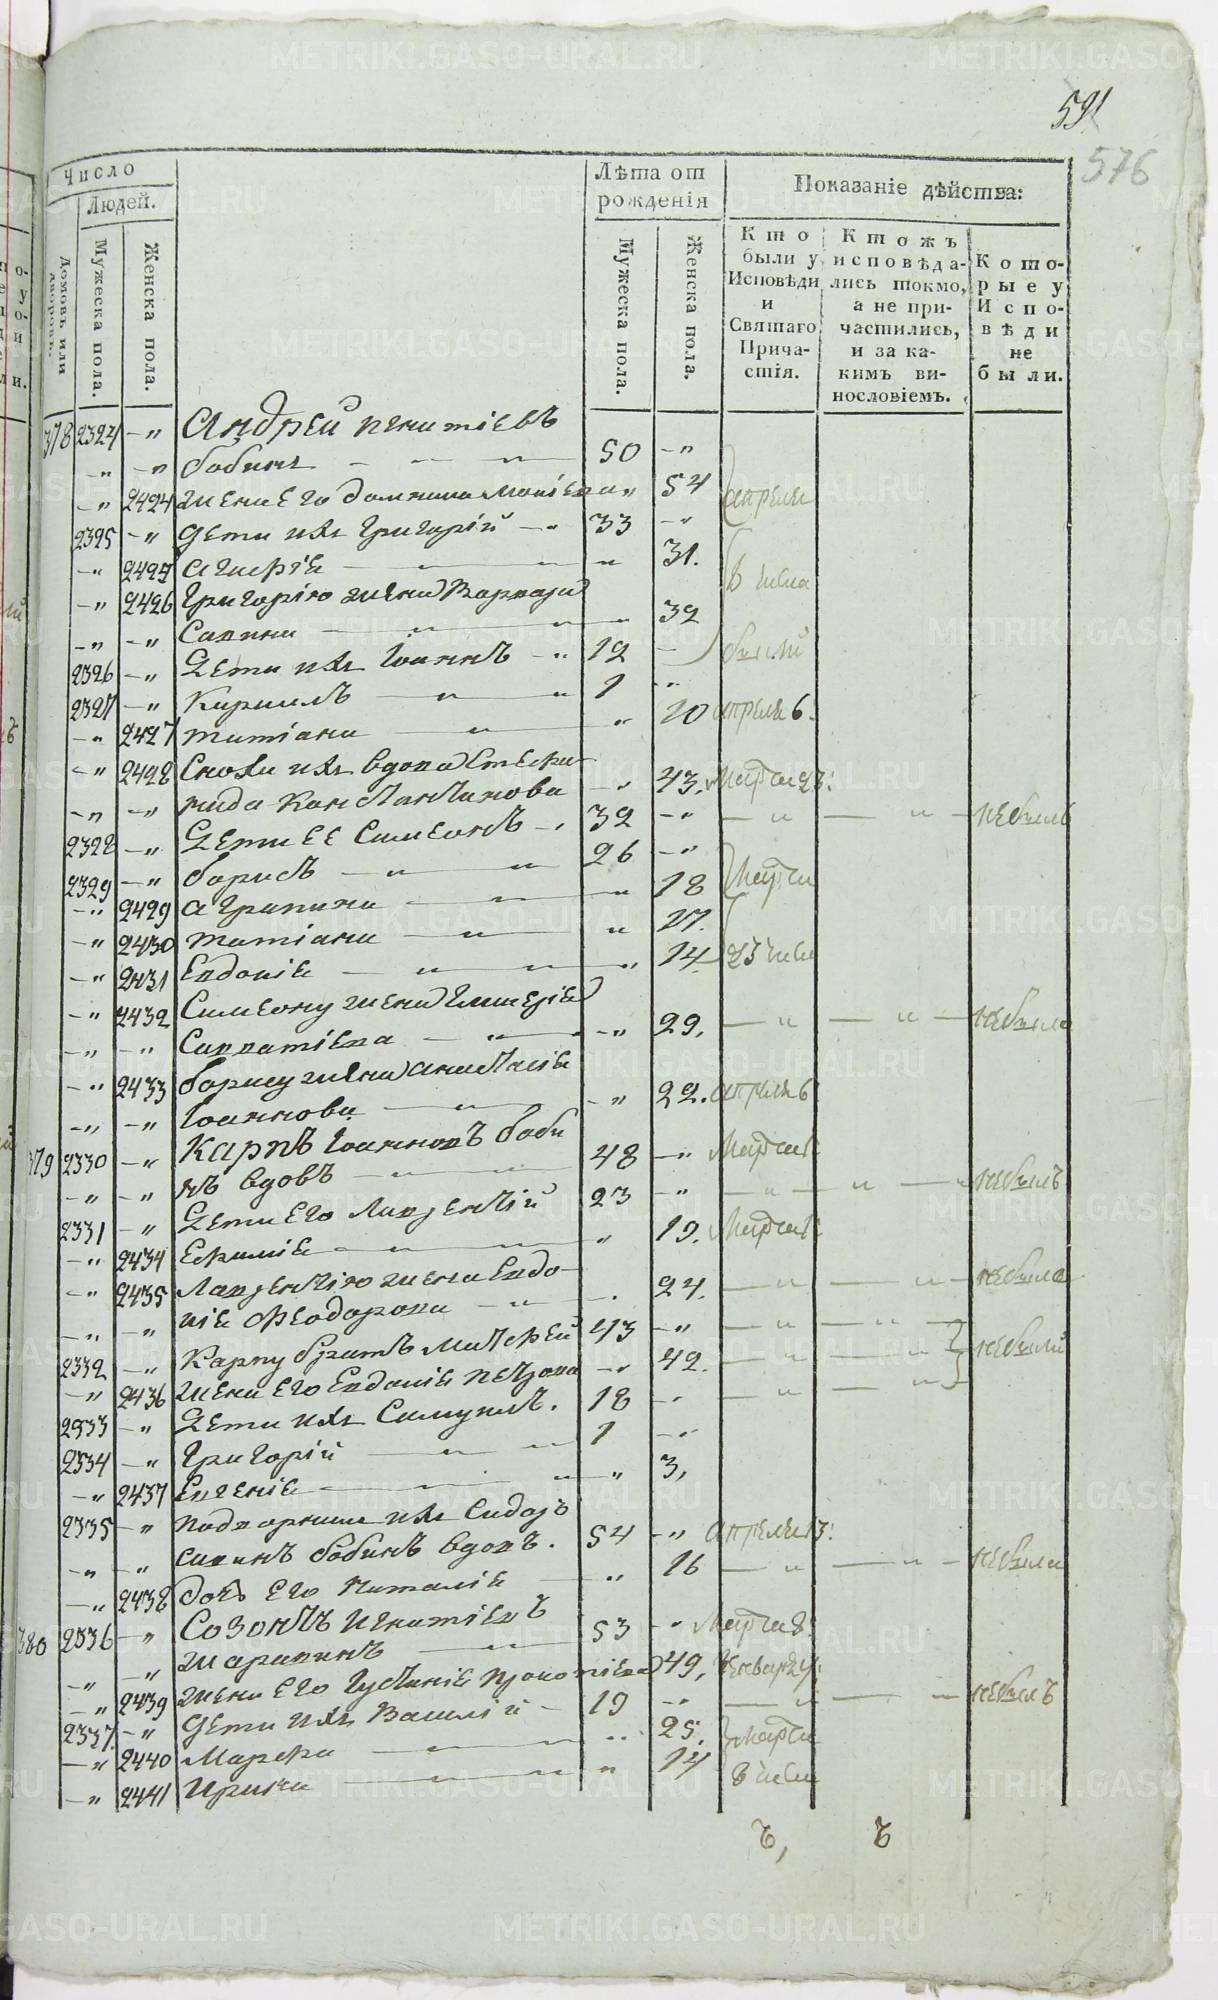 591
576
Число
Людей.
Домовъ или дворовъ.
Мужеска пола.
Женска пола.
Лѣта от рожденія
Мужеска пола.
Женска пола.
Показаніе дѣйства:
Кто были у Исповѣди и Святаго Причастія.
Ктожъ исповѣдались токмо, а не причастились, и за каким винословіемъ.
Которые у Исповѣди не были.
378 2324 —„ Андрей Игнатіевъ
—„ —„ бабинъ — — — 50 —„
—„ 2424 жена Его Домника Моисіева „ 54 апреля
2325 —„ дети ихъ Григорій —„ 33 —„
—„ 2425 Агафія — „ — „ 31.
—„ 2426 Григорію жена Варвара 6 числа
—„ —„ Савина — „ — „ 32
2326 —„ Дети ихъ Іоаннъ —„ 12 — были
2327 —„ Кириллъ — „ — „ 1 „
—„ 2427 татіана — „ — „ 10 апреля 6.
—„ 2428 Сноха ихъ вдова Стефа-
—„ —„ нида Константинова —„ 43. Марта 23:
2328 —„ Дети Ее Симеонъ —„ 32 —„ — „ — „ — небылъ
2329 —„ борисъ — „ — „ 26 —„ Марта
—„ 2429 агрипина — „ — „ 18
—„ 2430 татіана — „ — „ 17.
—„ 2431 Евдокія — „ — „ 14. 23 числа
—„ 2432 Симеону жена Гликерія
—„ —„ Савватіева — „ — „ 29. — „ — „ — небыла
—„ 2433 борису жена анастасія
—„ —„ Іоаннова — „ — „ 22. апреля 6
379 2330 —„ Карпъ Іоанновъ баби
—„ —„ нъ вдовъ — „ — 48 —„ Марта
2331 —„ Дети Его Лаврентій 23 —„ — „ — „ — небылъ
—„ 2434 Ефимія — „ — „ 19. Марта
—„ 2435 Лаврентію жена Евдо-
—„ —„ кія Феодорова — „ —. 24. — „ — „ — небыла
2332 —„ Карпу братъ Матфей 43 —„ — „ — „ —
—„ 2436 жена Его Евдокія петрова —„ 42. — „ — „ небыли
2333 —„ Дети ихъ Самуилъ. 18 —„ — „ — „
2334 —„ Григорій — „ — „ 1 —„
—„ 2437 Евгенія — „ — „ 3,
2335 —„ подворники ихъ Сидоръ
—„ —„ Савинъ бабинъ вдовъ. 54 —„ апреля 13:
—„ 2438 дочь Его Наталія — „ 16 — „ — „ — небыла
380 2336 —„ Созонтъ Игнатіевъ
—„ —„ Шаравинъ — „ — 53 —„ Марта 8:
—„ 2439 жена Его Густинія прокопіева 49,
2337. —„ Дети ихъ Василій — 19 —„ — „ — — небылъ
—„ 2440 Марфа — „ — „ 25. Марта
—„ 2441 Ирина — „ — „ 14 8 числа